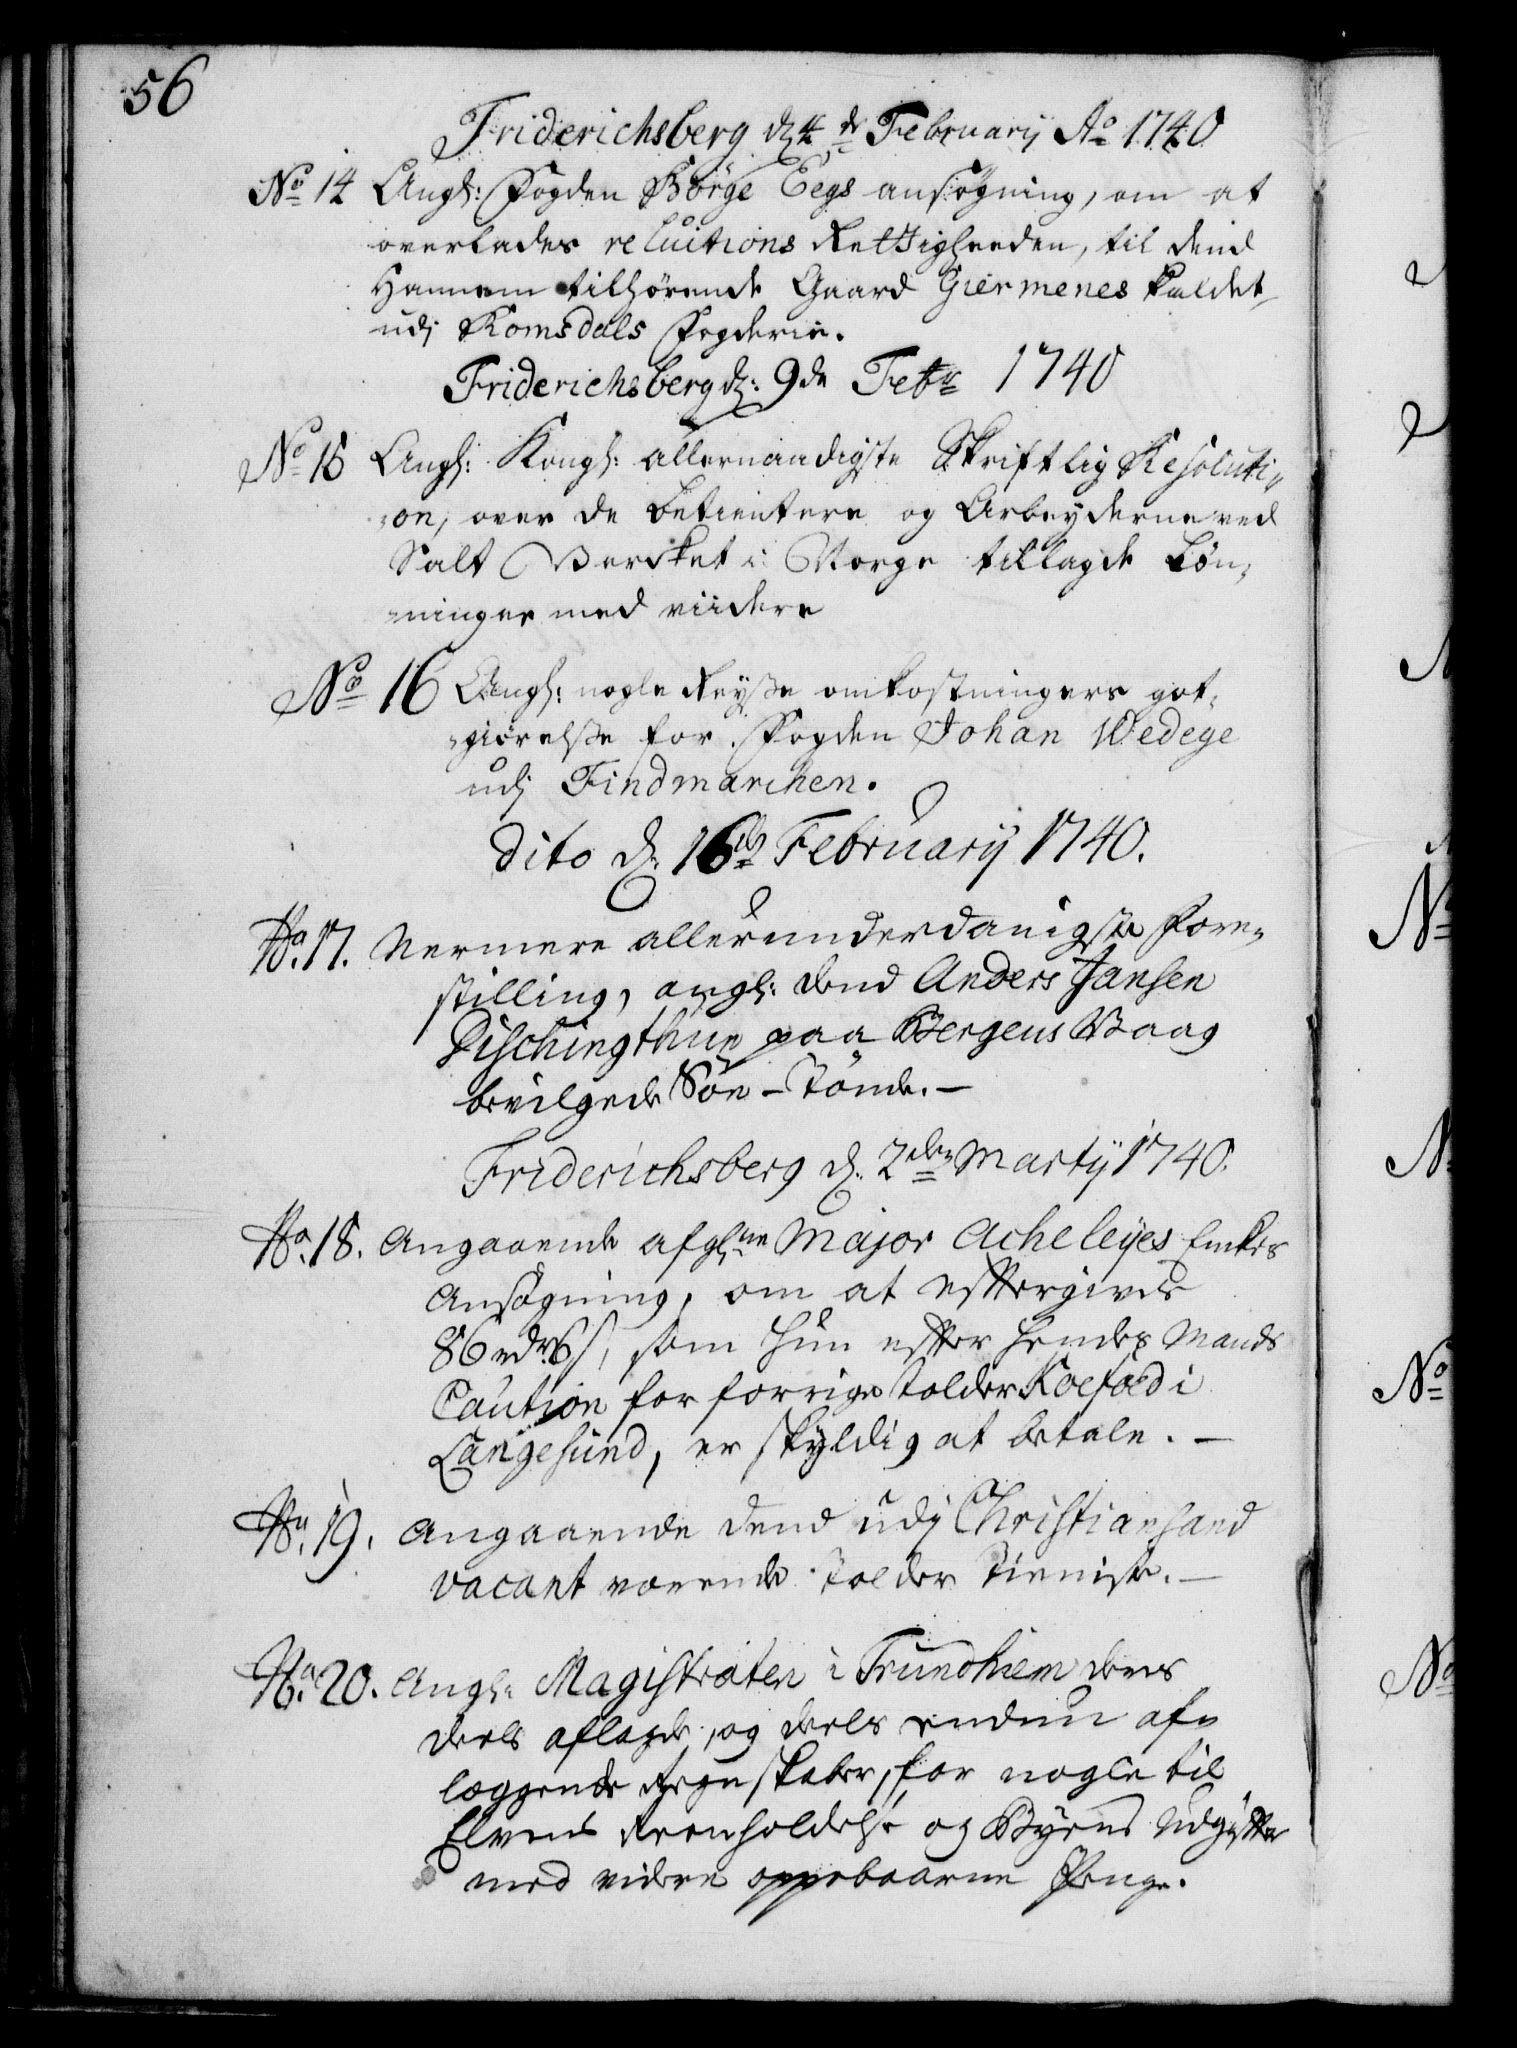 56
Friderichsberg d: 4de February Ao 1740
No 14 Angl: Fogden Börge Eegs ansøgning, om at
overlades reluitions Rettigheeden, til dend
Hannem tilhörende Gaard Giermenes kaldet,
udj Romsdals Fogderie.
Friderichsberg d: 9de Febr 1740
No 15 Angl: Kongl: allernaadigste Skriftlig Resoluti-
on, over de betientere og Arbeyderne ved
Salt Vercket i Norge tillagde Løn-
ninger med viidere
No 16 Angl: nogle Reysse omkostningers got-
giørelsse for Fogden Johan Wedege
udj Findmarchen.
Dito d: 16de February 1740.
No. 17. Nermere allerunderdanigste Fore-
stilling, angl: dend Anders Jansen
paa Bergens Vaag
bevilgede Tönde. —
Friderichsberg d: 2den Martij 1740.
No. 18. Angaaende afgl:ne Major Acheleyes Enkes
Ansøgning, om at efftergives
86 rdr 6 s, som hun effter hendes Mands
Caution for forrige Tolder Koefoed i
Langesund, er skyldig at betale. —
No. 19. Angaaende dend udj Christiansand
vacant værende Tolder Tieniste. —
No. 20. Angl: Magistraten i Trundhiem deres
deels aflagde, og deels endnu af-
læggende Regnskaber, for nogle til
Elvens Reenholdelse og Byens Udgiffter
med videre oppebaarne Penge.